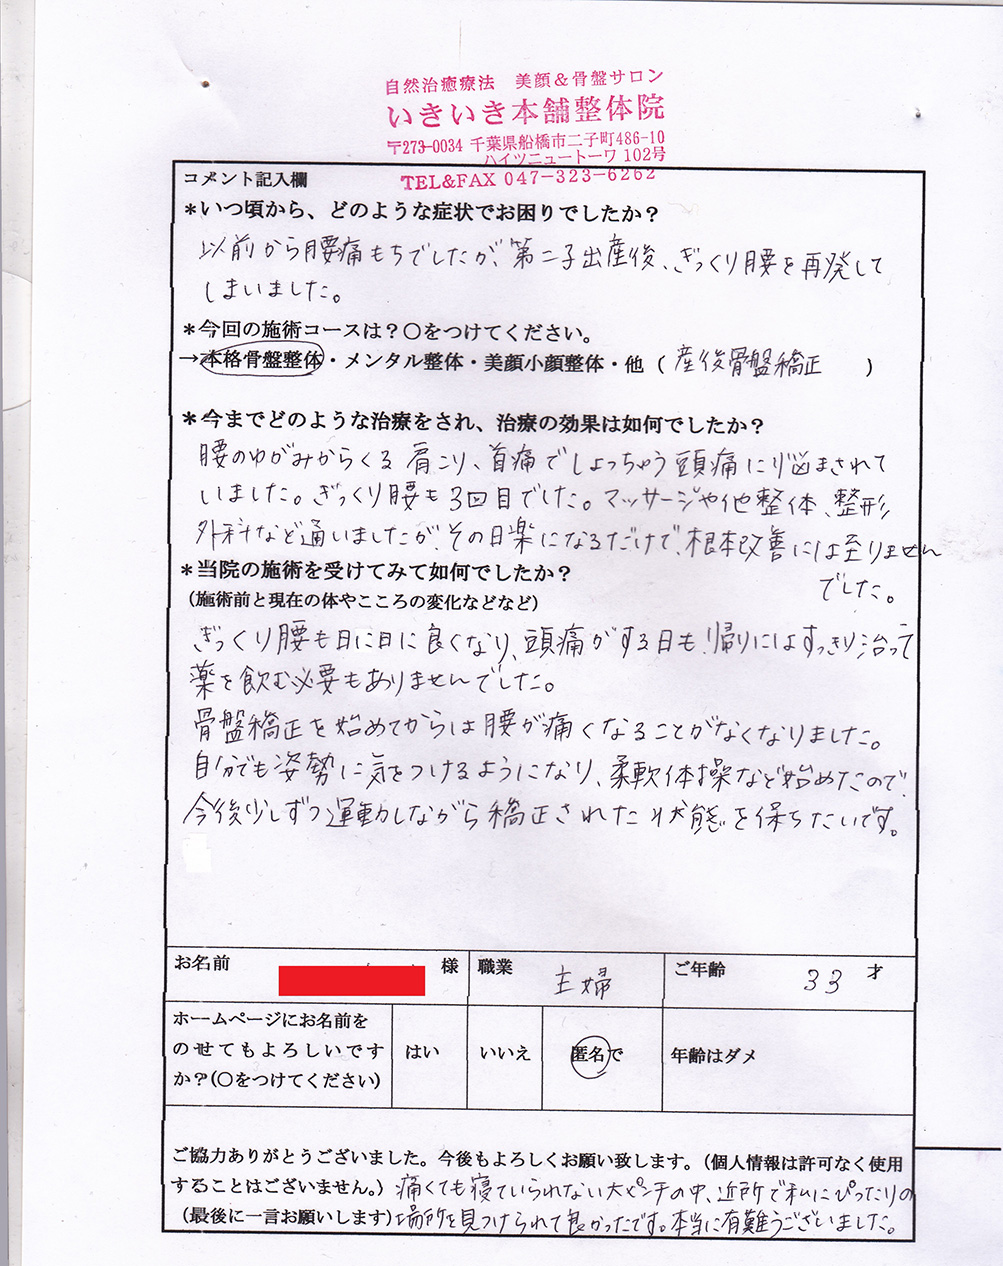 自然治癒療法 美顔＆骨盤サロン
いきいき本舗整体院
〒273-0034 千葉県船橋市二子町486-10
ハイツニュートーワ 102号
TEL&FAX 047-323-6262
コメント記入欄
＊いつ頃から、どのような症状でお困りでしたか？
以前から腰痛もちでしたが、第二子出産後、ぎっくり腰を再発して
しまいました。
＊今回の施術コースは？〇をつけてください。
→本格骨盤整体・メンタル整体・美顔小顔整体・他（ 産後骨盤矯正 ）
＊今までどのような治療をされ、治療の効果は如何でしたか？
腰のゆがみからくる肩こり、首痛でしょっちゅう頭痛に悩まされて
いました。ぎっくり腰も3回目でした。マッサージや他整体、整形
外科など通いましたが、その日楽になるだけで、根本改善には至りません
でした。
＊当院の施術を受けてみて如何でしたか？
（施術前と現在の体やこころの変化などなど）
ぎっくり腰も日に日に良くなり、頭痛がする日も、帰りにはすっきり治って
薬を飲む必要もありませんでした。
骨盤矯正を始めてからは腰が痛くなることがなくなりました。
自分でも姿勢に気をつけるようになり、柔軟体操など始めたので、
今後少しずつ運動しながら矯正された状態を保ちたいです。
お名前 様 職業 主婦 ご年齢 33 才
ホームページにお名前を
のせてもよろしいです はい いいえ 匿名で 年齢はダメ
か？（〇をつけてください）
ご協力ありがとうございました。今後もよろしくお願い致します。（個人情報は許可なく使用
することはございません。）痛くても寝ていられない大ピンチの中、近所で私にぴったりの
（最後に一言お願いします）場所を見つけられて良かったです。本当に有難うございました。